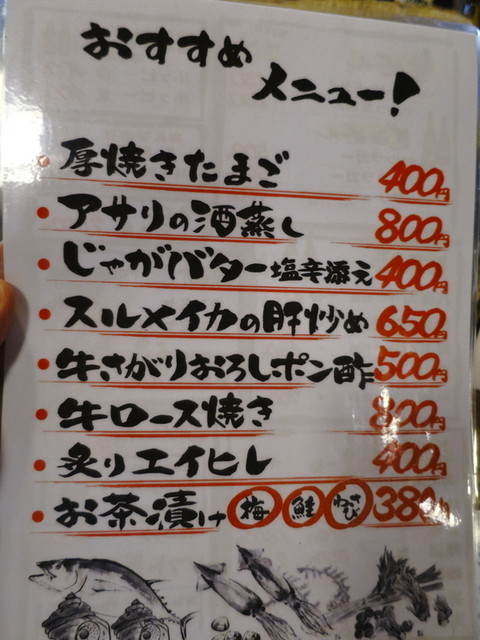 おすすめ
メニュー!
厚焼きたまご 400円
アサリの酒蒸し 800円
じゃがバター塩辛添え 400円
スルメイカの肝炒め 650円
牛さがりおろしポン酢 500円
牛ロース焼き 800円
炙りエイヒレ 400円
お茶漬け 梅 鮭 わさび 380円